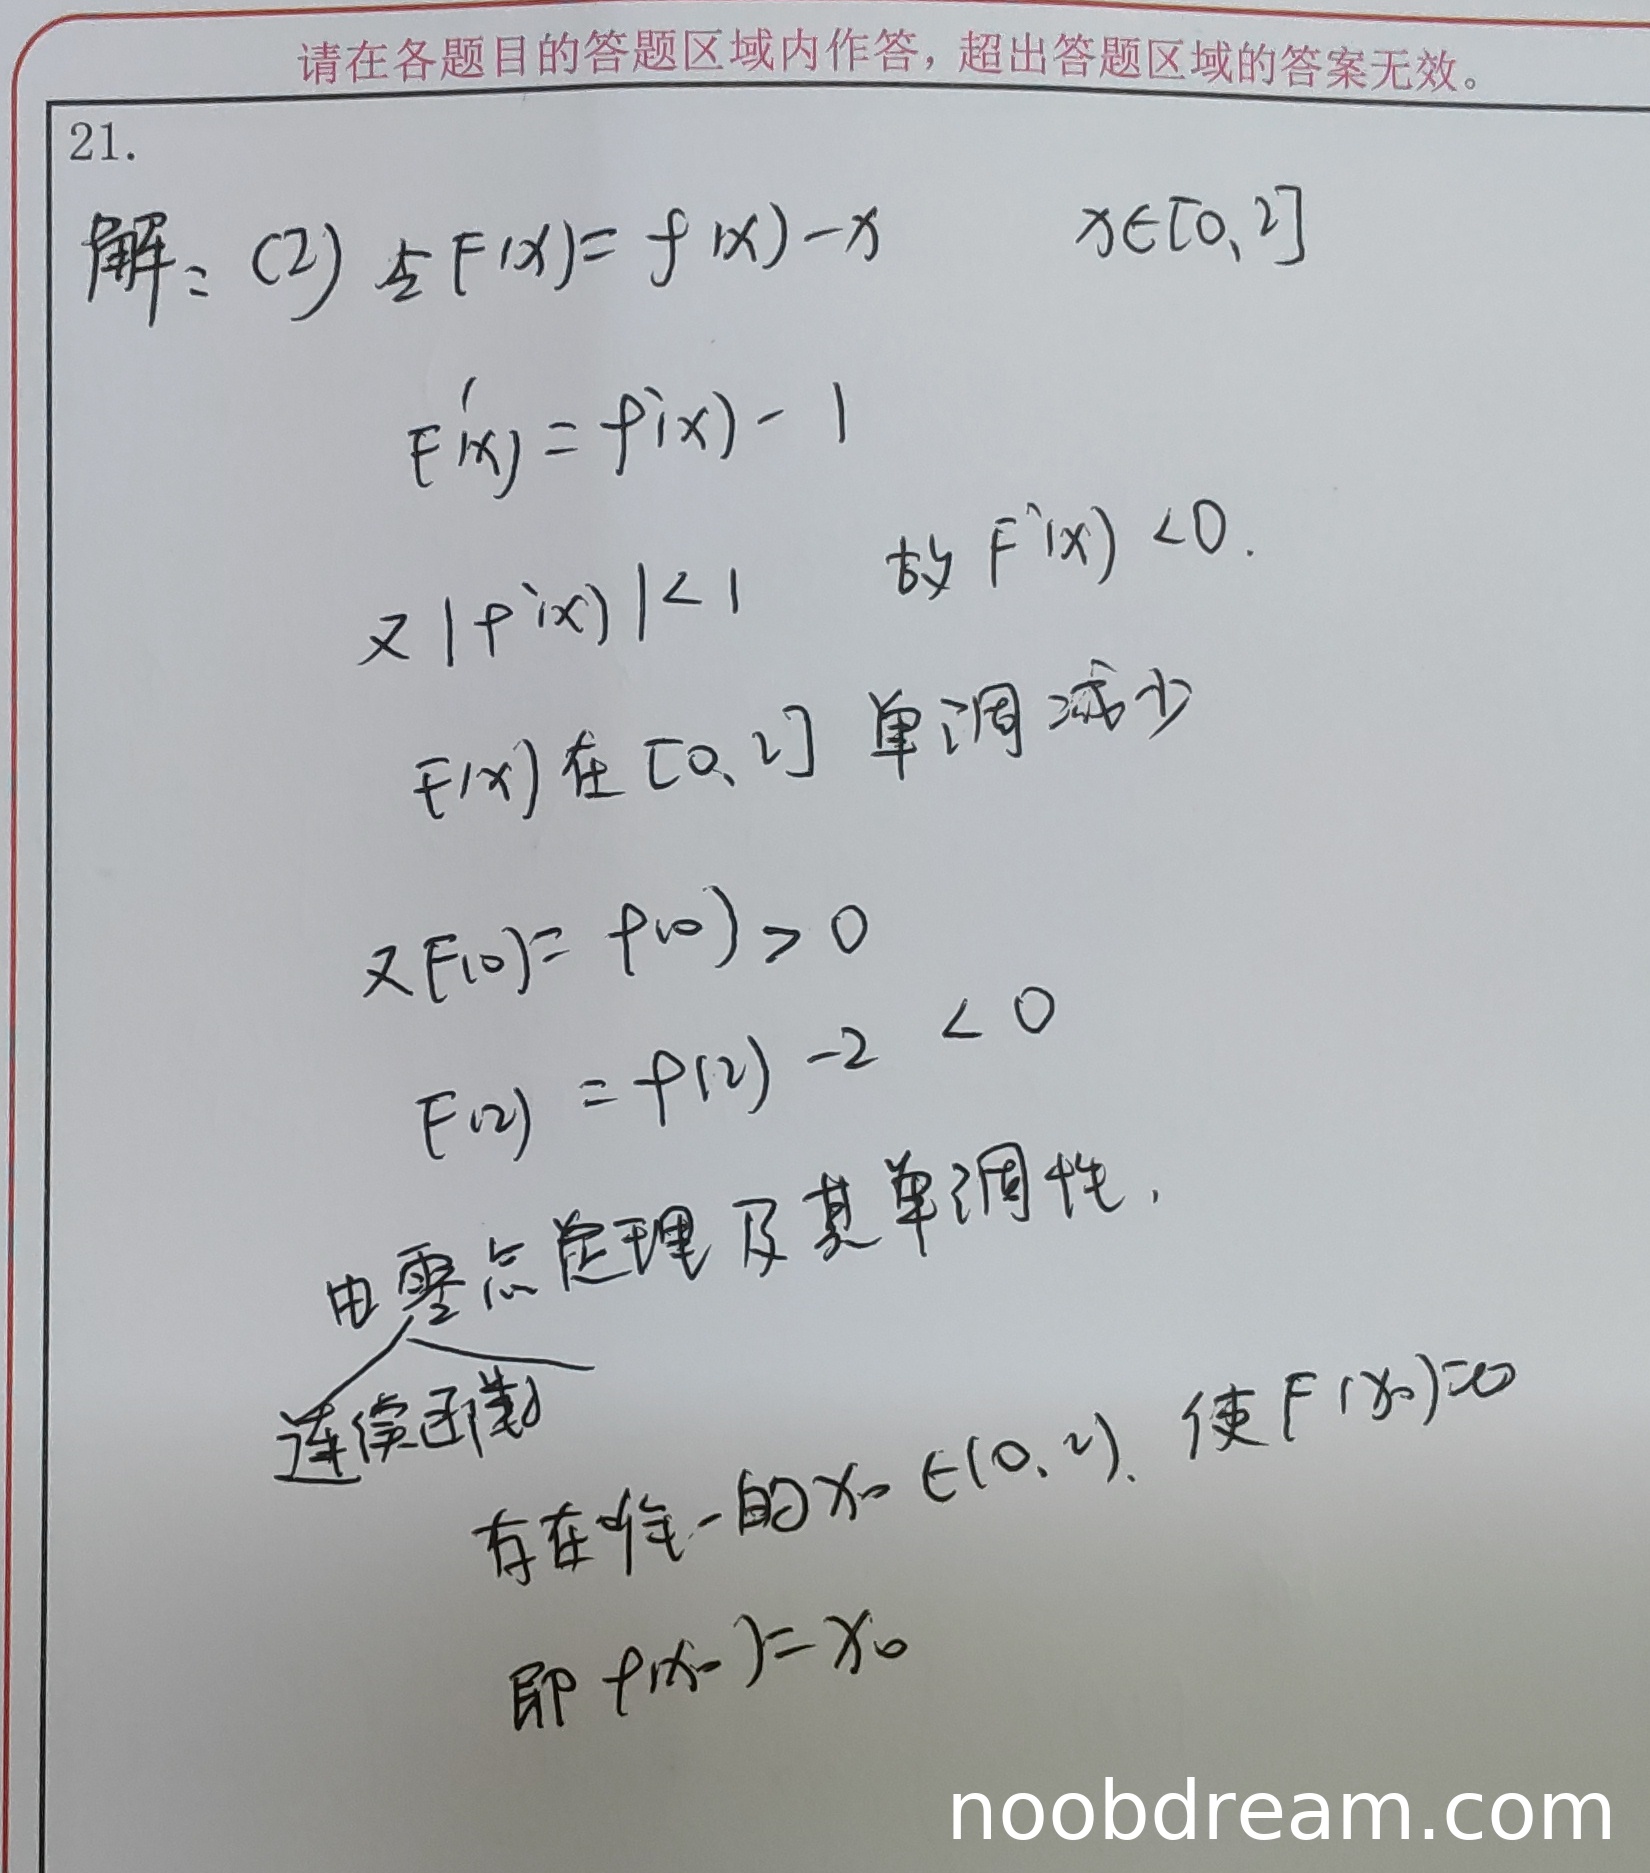 请在各题目的答题区域内作答，超出答题区域的答案无效。
21.
解：(2) 令F(x)=f(x)-x x∈[0,2]
F'(x)=f'(x)-1
又|f'(x)|<1 故F'(x)<0.
F(x)在[0,2]单调减少
又F(0)=f(0)>0
F(2)=f(2)-2<0
由零点定理及其单调性,
连续函数
存在唯一的x₀∈(0,2),使F(x₀)=0
即f(x₀)=x₀
noobdream.com